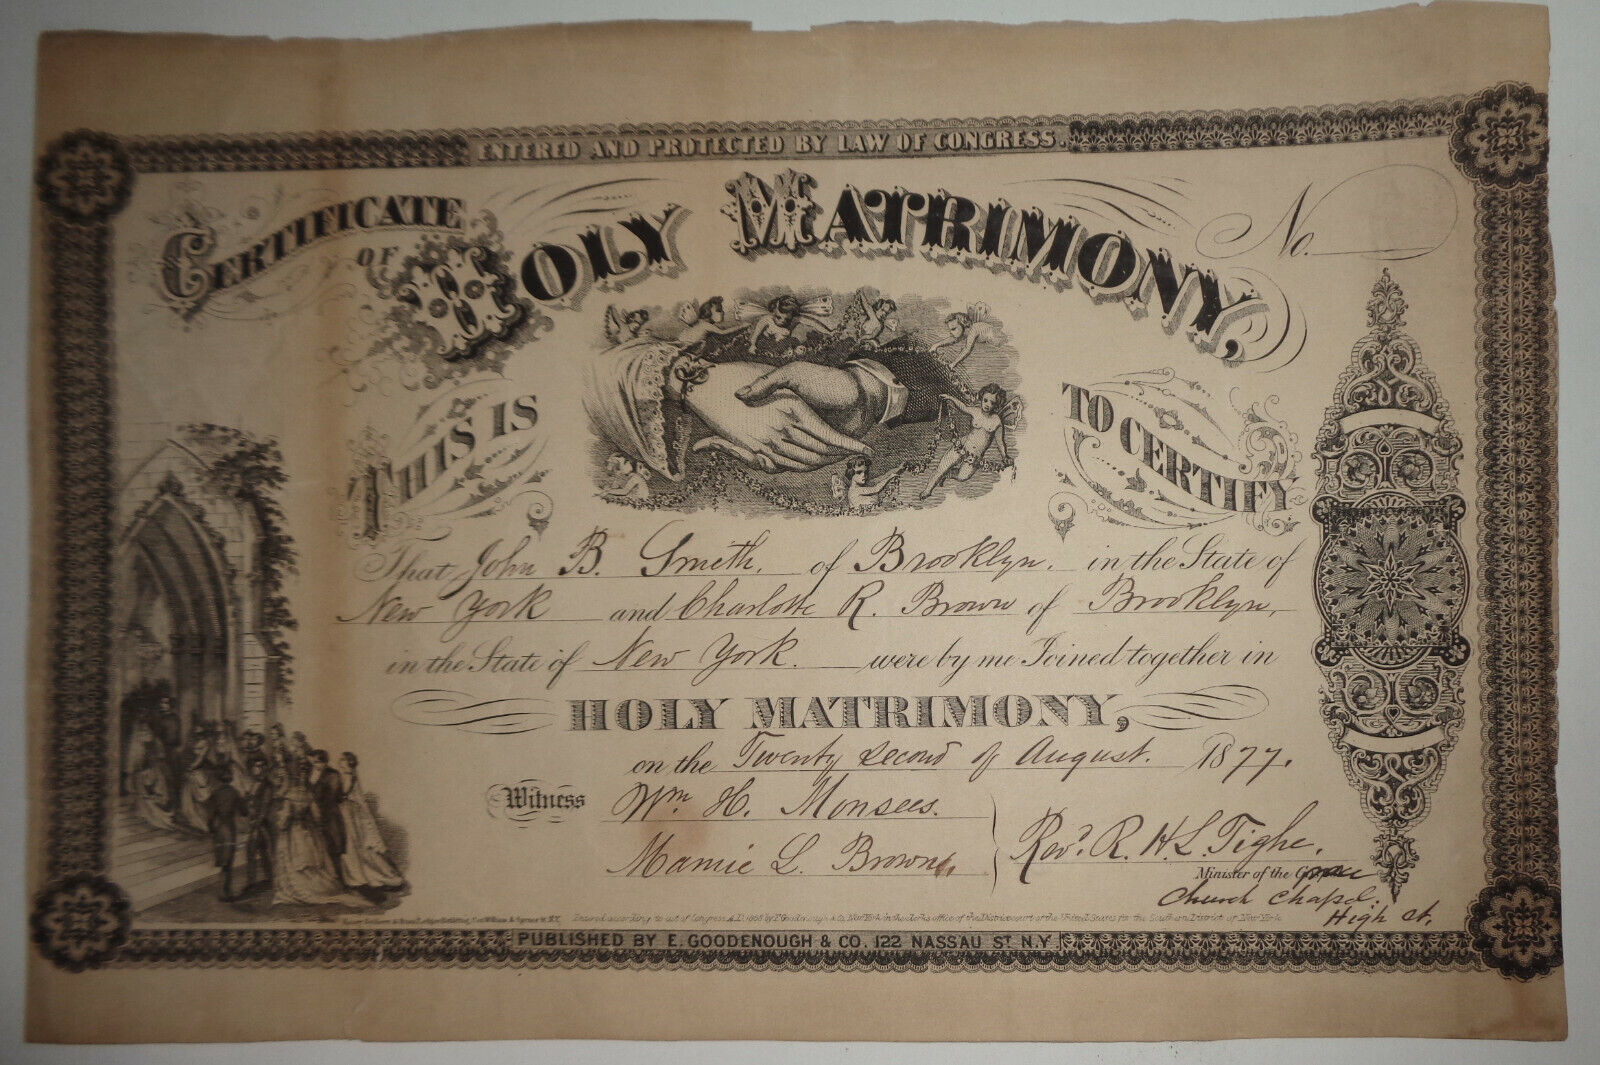 ENTERED AND PROTECTED BY LAW OF CONGRESS.
CERTIFICATE OF HOLY MATRIMONY,
No.
THIS IS TO CERTIFY
That John B. Smith. of Brooklyn. in the State of
New York and Charlotte R. Brown of Brooklyn,
in the State of New York. were by me Joined together in
HOLY MATRIMONY,
on the Twenty second of August. 1877.
Witness Wm H. Monsees.
Mamie L. Brown. Revd. R. H. L. Tighe.
Minister of the Grace
Church Chapel.
High St.
Entered according to act of Congress A.D. 1865 by E. Goodenough & Co. New York in the clerks office of the District court of the United States for the Southern District of New York
PUBLISHED BY E. GOODENOUGH & CO. 122 NASSAU ST. N.Y.